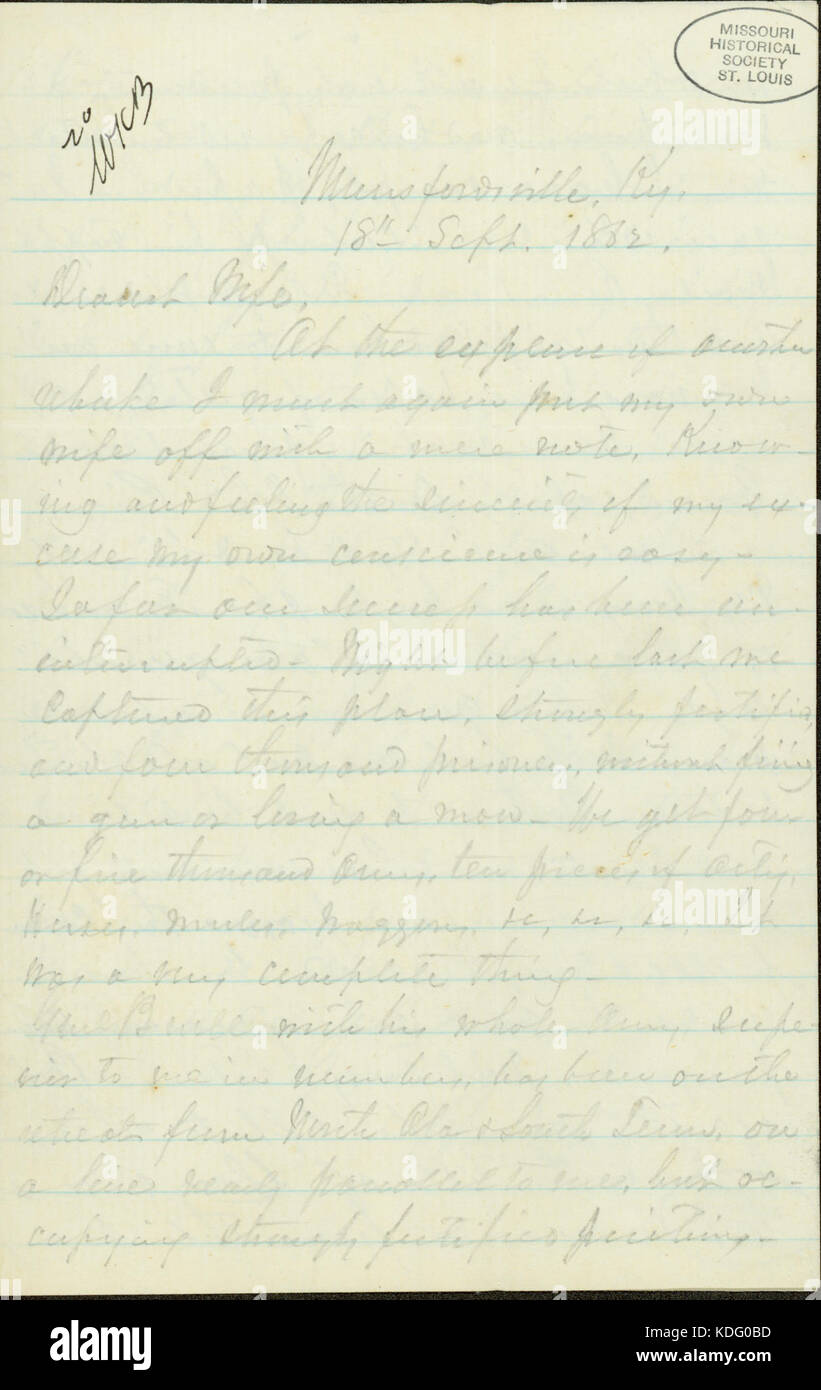 MISSOURI
HISTORICAL
SOCIETY
ST. LOUIS
20
WKB
Munsfordsville, Ky.
18th Sept. 1862.
Dearest Wife,
At the expense of another
rebuke I must again put my own
wife off with a mere note. Know-
ing and feeling the sincerity of my ex-
cuse my own conscience is easy-
So far our success has been un-
interrupted- Night before last we
captured this place, strongly fortified,
and four thousand prisoners, without firing
a gun or losing a man- We get four
or five thousand arms, ten pieces of arty,
Horses, mules, waggons, &c, &c, &c. It
was a very complete thing-
Genl Buell with his whole army, supe-
rior to me in numbers, has been on the
retreat from North Ala & South Tenn, on
a line nearly parallel to me, but oc-
cupying strongly fortified positions.-
alamy
alamy
alamy
alamy
alamy
alamy stock photo
KDG0BD